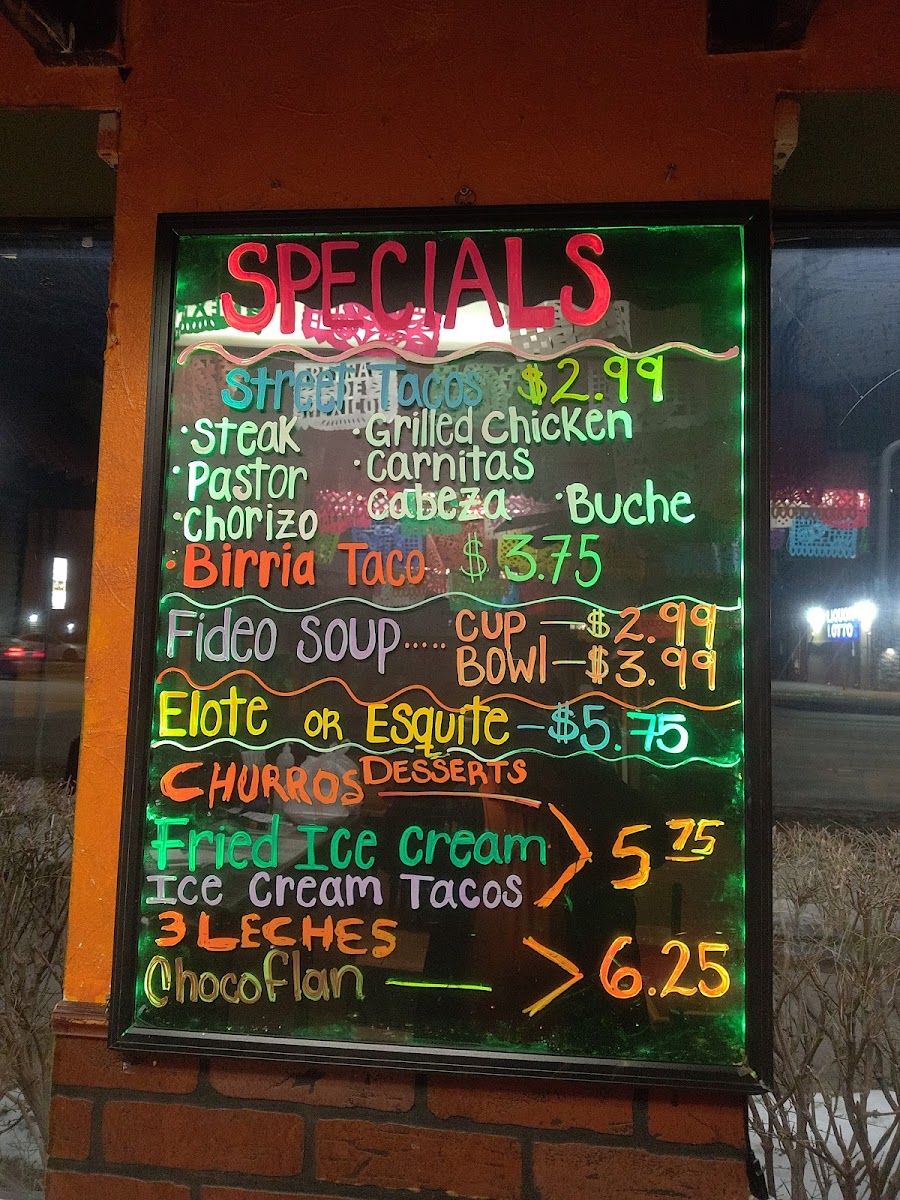 SPECIALS
Street Tacos $2.99
·Steak ·Grilled Chicken
·Pastor ·Carnitas
·Chorizo Cabeza ·Buche
·Birria Taco $3.75
Fideo Soup..... Cup —$2.99
Bowl—$3.99
Elote or Esquite —$5.75
DESSERTS
CHURROS
Fried Ice Cream > 5 75
Ice Cream Tacos
3 LECHES
Chocoflan > 6.25
LIQUOR
LOTTO